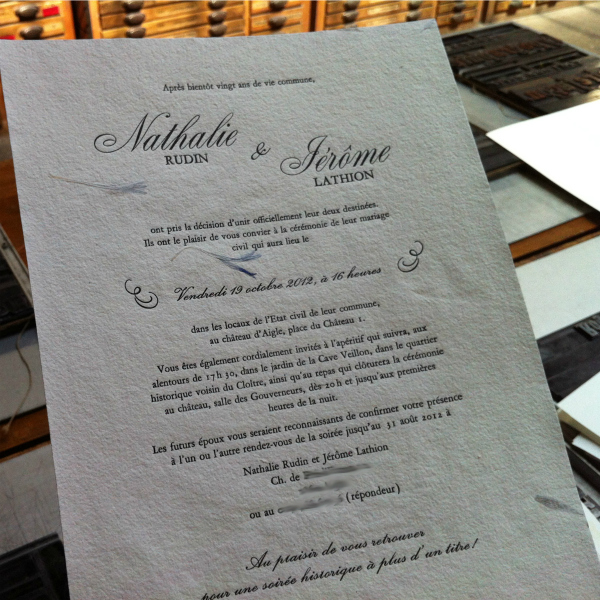 Après bientôt vingt ans de vie commune,
Nathalie & Jérôme
RUDIN LATHION
ont pris la décision d'unir officiellement leur deux destinées.
Ils ont le plaisir de vous convier à la cérémonie de leur mariage
civil qui aura lieu le
Vendredi 19 octobre 2012, à 16 heures
dans les locaux de l'Etat civil de leur commune,
au château d'Aigle, place du Château 1.
Vous êtes également cordialement invités à l'apéritif qui suivra, aux
alentours de 17h30, dans le jardin de la Cave Veillon, dans le quartier
historique voisin du Cloître, ainsi qu'au repas qui clôturera la cérémonie
au château, salle des Gouverneurs, dès 20h et jusqu'aux premières
heures de la nuit.
Les futurs époux vous seraient reconnaissants de confirmer votre présence
à l'un ou l'autre rendez-vous de la soirée jusqu'au 31 août 2012 à
Nathalie Rudin et Jérôme Lathion
Ch. de
ou au (répondeur)
Au plaisir de vous retrouver
pour une soirée historique à plus d'un titre!